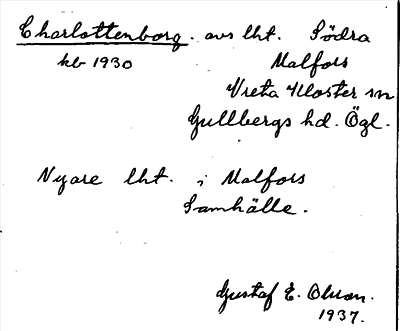 Charlottenborg. avs lht. Södra
kb 1930 Malfors
Vreta Kloster sn
Gullbergs hd. Ögl.
Nyare lht. i Malfors
Samhälle.
Gustaf E. Olsson.
1937.